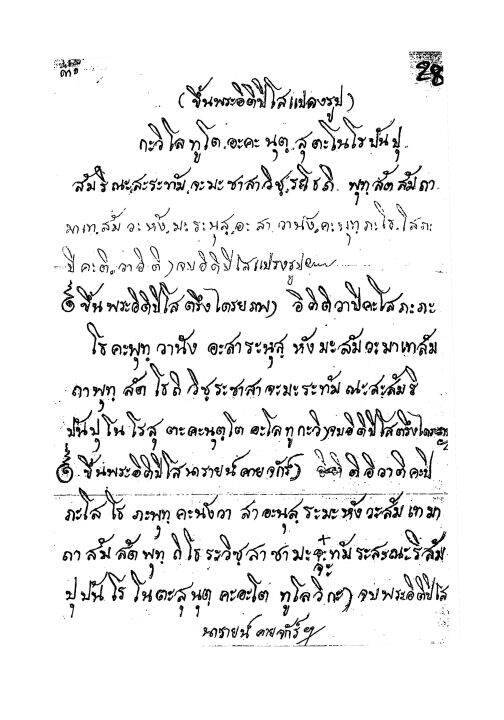 28
(ขึ้นพระอิติปิโสแปลงรูป)
กะวิโล ทูโต อะคะ นุตฺ สุ ตะโนโร ปันปุ
สัมริ ณะสะระทัม จะมะ ชาสาวิชฺ ระโธถิ พุทฺ สัต สัมถา
มาเท สัม วะ หัง มะ ระนุสฺ อะ สา วานัง คะ พุทฺ ภะโธ โสภะ
ปิ คะติ วาอิติ) จบอิติปิโสแปรงรูปฯ
๑ ขึ้นพระอิติปิโสตรึงไตรยภพ) อิติติวาปิคะโสภะภะ
โธ คะพุทฺ วานัง อะสาระนุสฺ หังมะสัมวะมาเทสัม
ถาพุทฺ สัต โธถิ วิชฺระชาสาจะมะระทัม ณะสะสัมริ
ปันปุ โน โรสุ ตะคะนุตฺโต อะโลทูกะวิ) จบอิติปิโสตรึงไตร
๑ ขึ้นพระอิติปิโสนารายน์คายจักร์) ติอิวาติคะปิ
ภะโส โธ ภะพุทฺ คะนังวา สาอะนุสฺ ระมะหังวะสัมเทมา
ถา สัม สัตพุทฺ ถิโธระวิชฺสาชามะจะทัม ระสะณะริสัม
ปุปัน โร โนตะสุนุตฺ คะอะโต ทูโลวิกะ) จบพระอิติปิโส
นารายน์ คายจักร์ ฯ